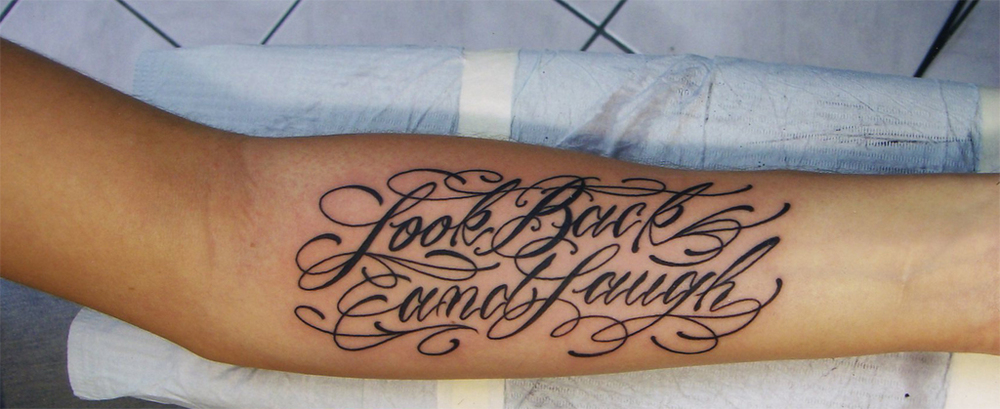 Look Back
and Laugh